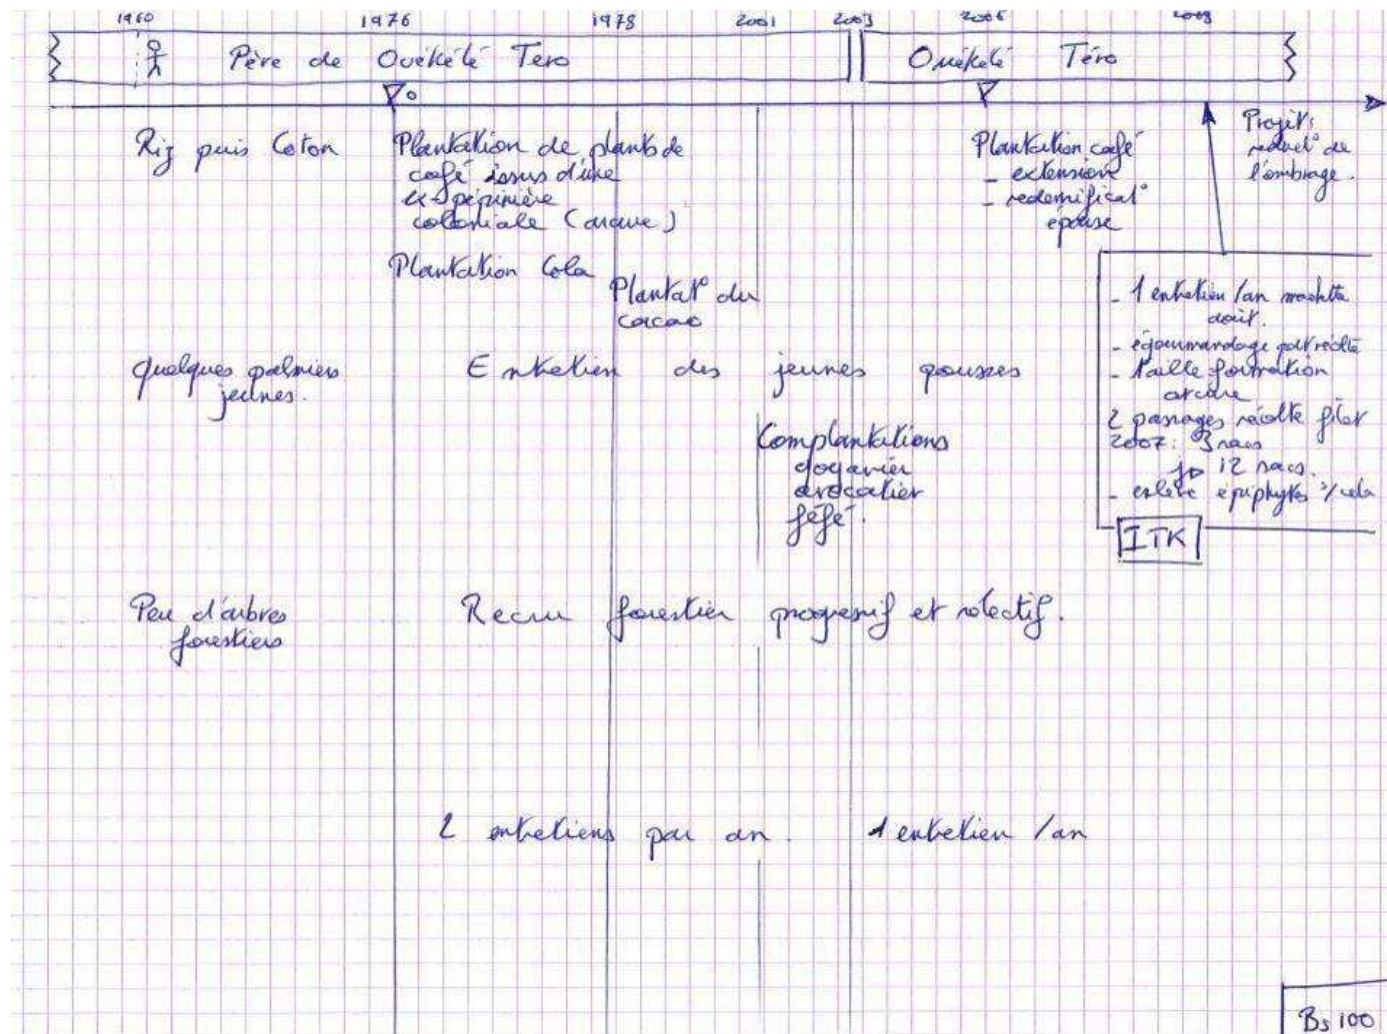 1960 1976 1978 2001 2003 2006 2009
Père de Ouékélé Téro
Ouékélé Téro
Riz puis Coton
Plantation de plants de
café issus d'une
ex-pépinière
coloniale
Plantation Cola
Plantat° du
cacao
Plantation café
- extension
- redensificat°
épouse
Projet:
réduct° de
l'ombrage.
- 1 entretien /an machette
- égourmandage
- taille formation
2 passages récolte
2007: 3 sacs
12 sacs.
- enlève épiphytes s/cola
ITK
Quelques palmiers
jeunes.
Entretien des jeunes pousses
Complantations
goyavier
avocatier
féfé.
Peu d'arbres
forestiers
Recru forestier progressif et sélectif.
2 entretiens par an.
1 entretien /an
Bs 100